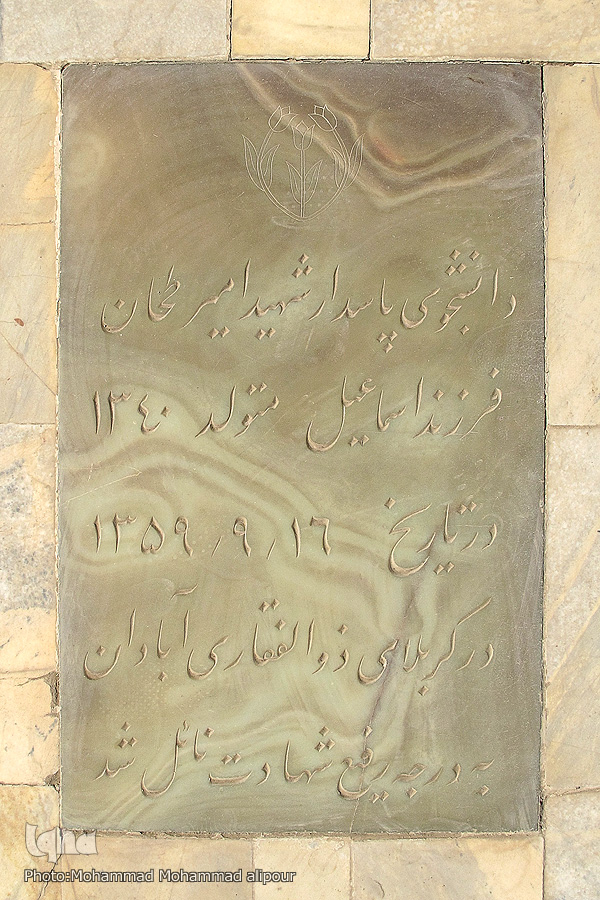 دانشجوی پاسدار شهید امیر طحان
فرزند اسماعیل متولد ۱۳۴۰
در تاریخ ۱۶ / ۹ / ۱۳۵۹
در کربلای ذوالفقاری آبادان
به درجه رفیع شهادت نائل شد
Iqna
Photo:Mohammad Mohammad alipour